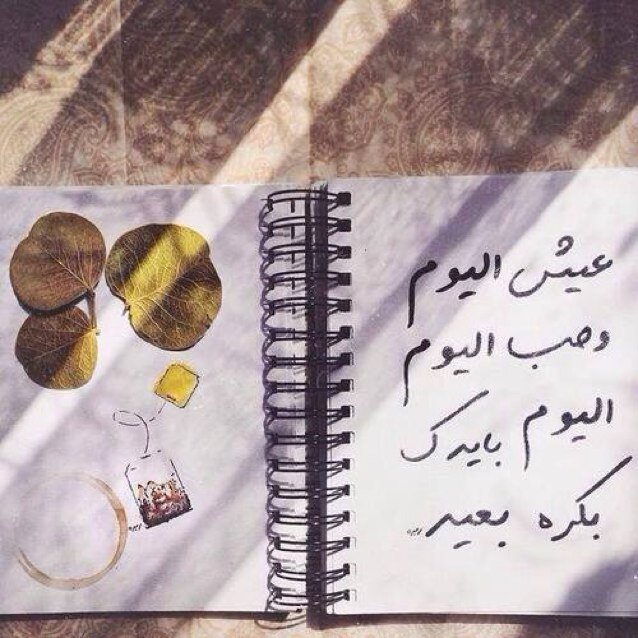 عيش اليوم
وحب اليوم
اليوم بايدك
بكره بعيد